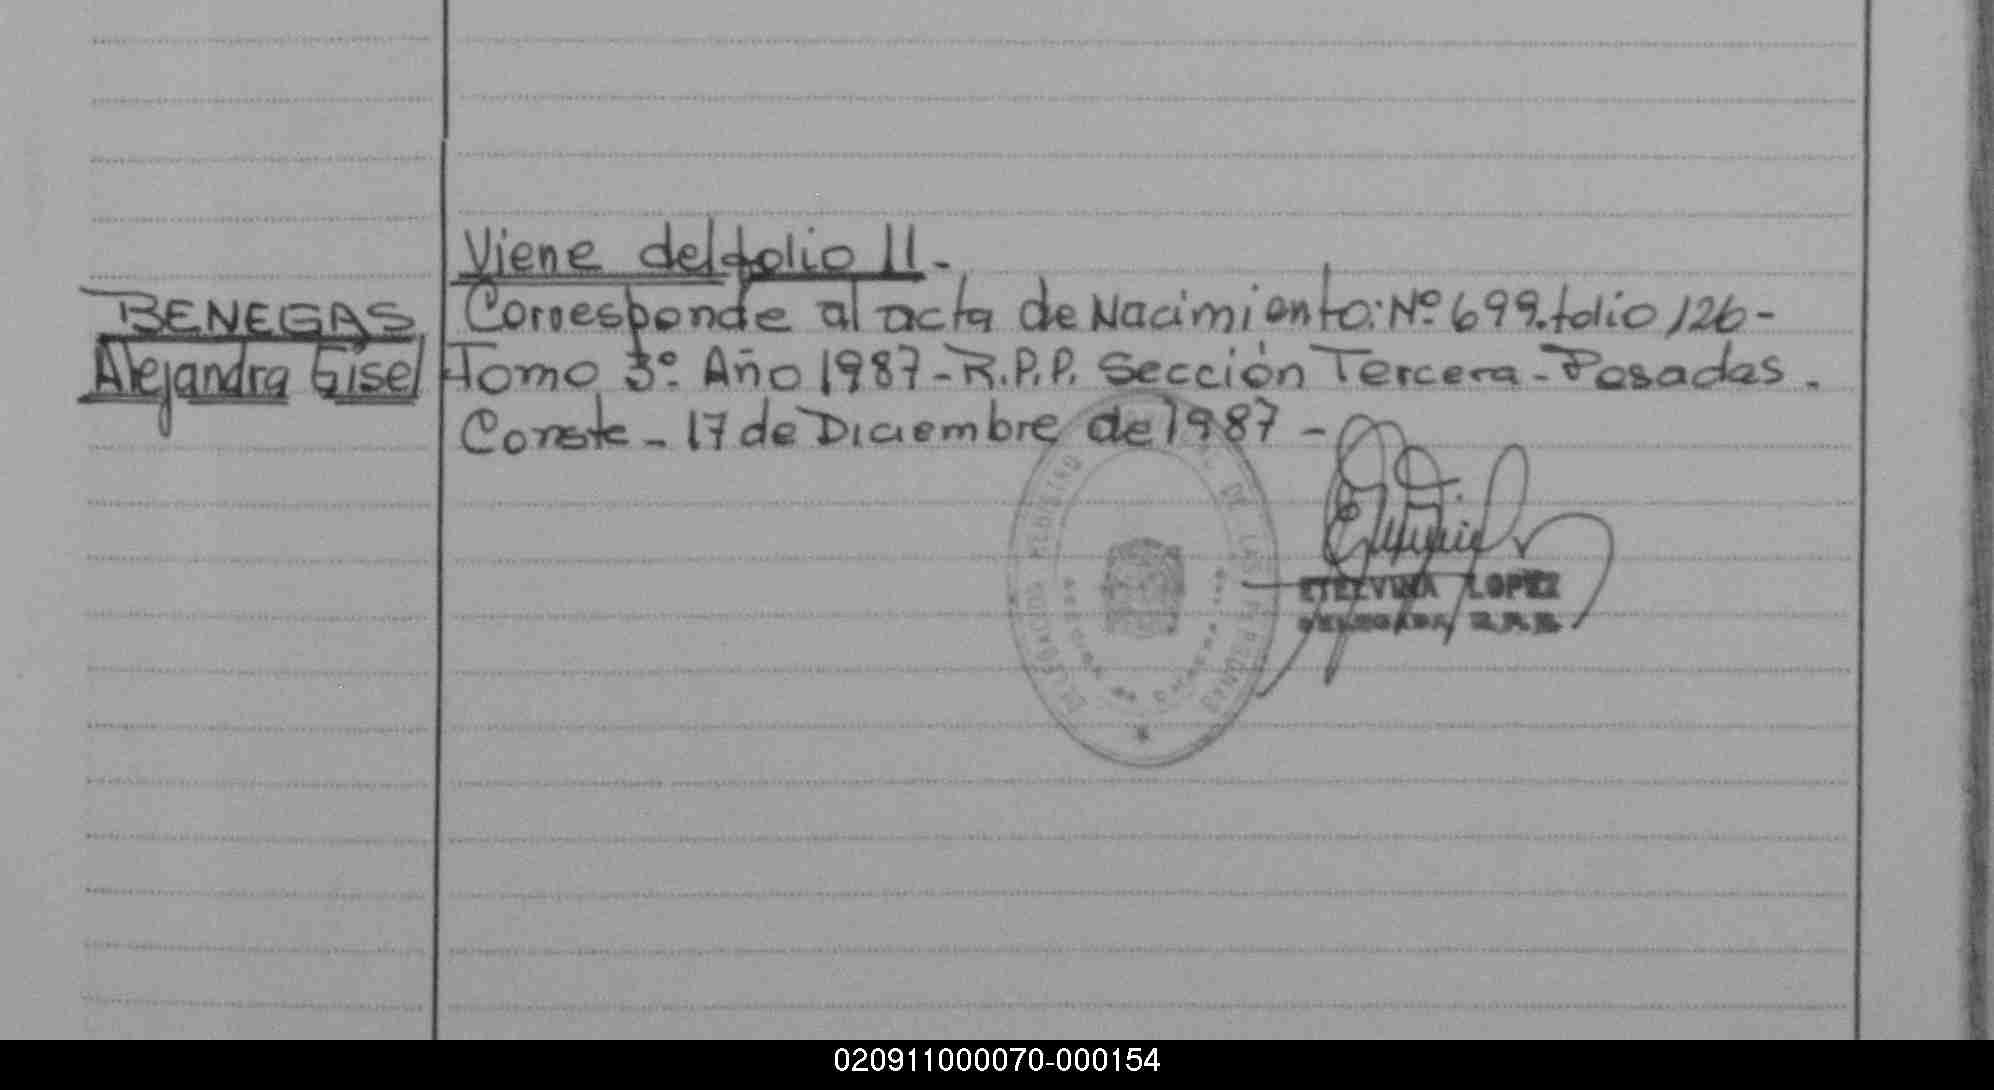 Viene del folio 11.-
BENEGAS
Alejandra Gisel
Corresponde al acta de Nacimiento: Nº 699. folio 126-
Tomo 3º. Año 1987-R.P.P. Sección Tercera-Posadas.
Conste- 17 de Diciembre de 1987-
DELEGACION REGISTRO DE LAS PERSONAS
ETELVINA LOPEZ
DELEGADA
020911000070-000154